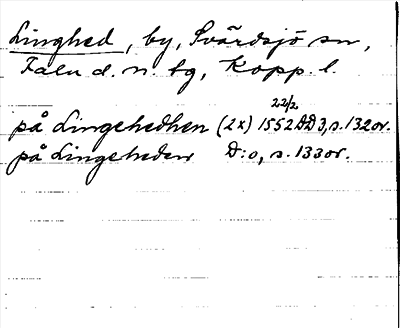 Linghed, by, Svärdsjö sn,
Falu d. n. bg, Kopp. l.
22/2
på Lingehedhen (2x) 1552 DD3, s. 132 or.
på Lingeheden D:o, s. 133 or.